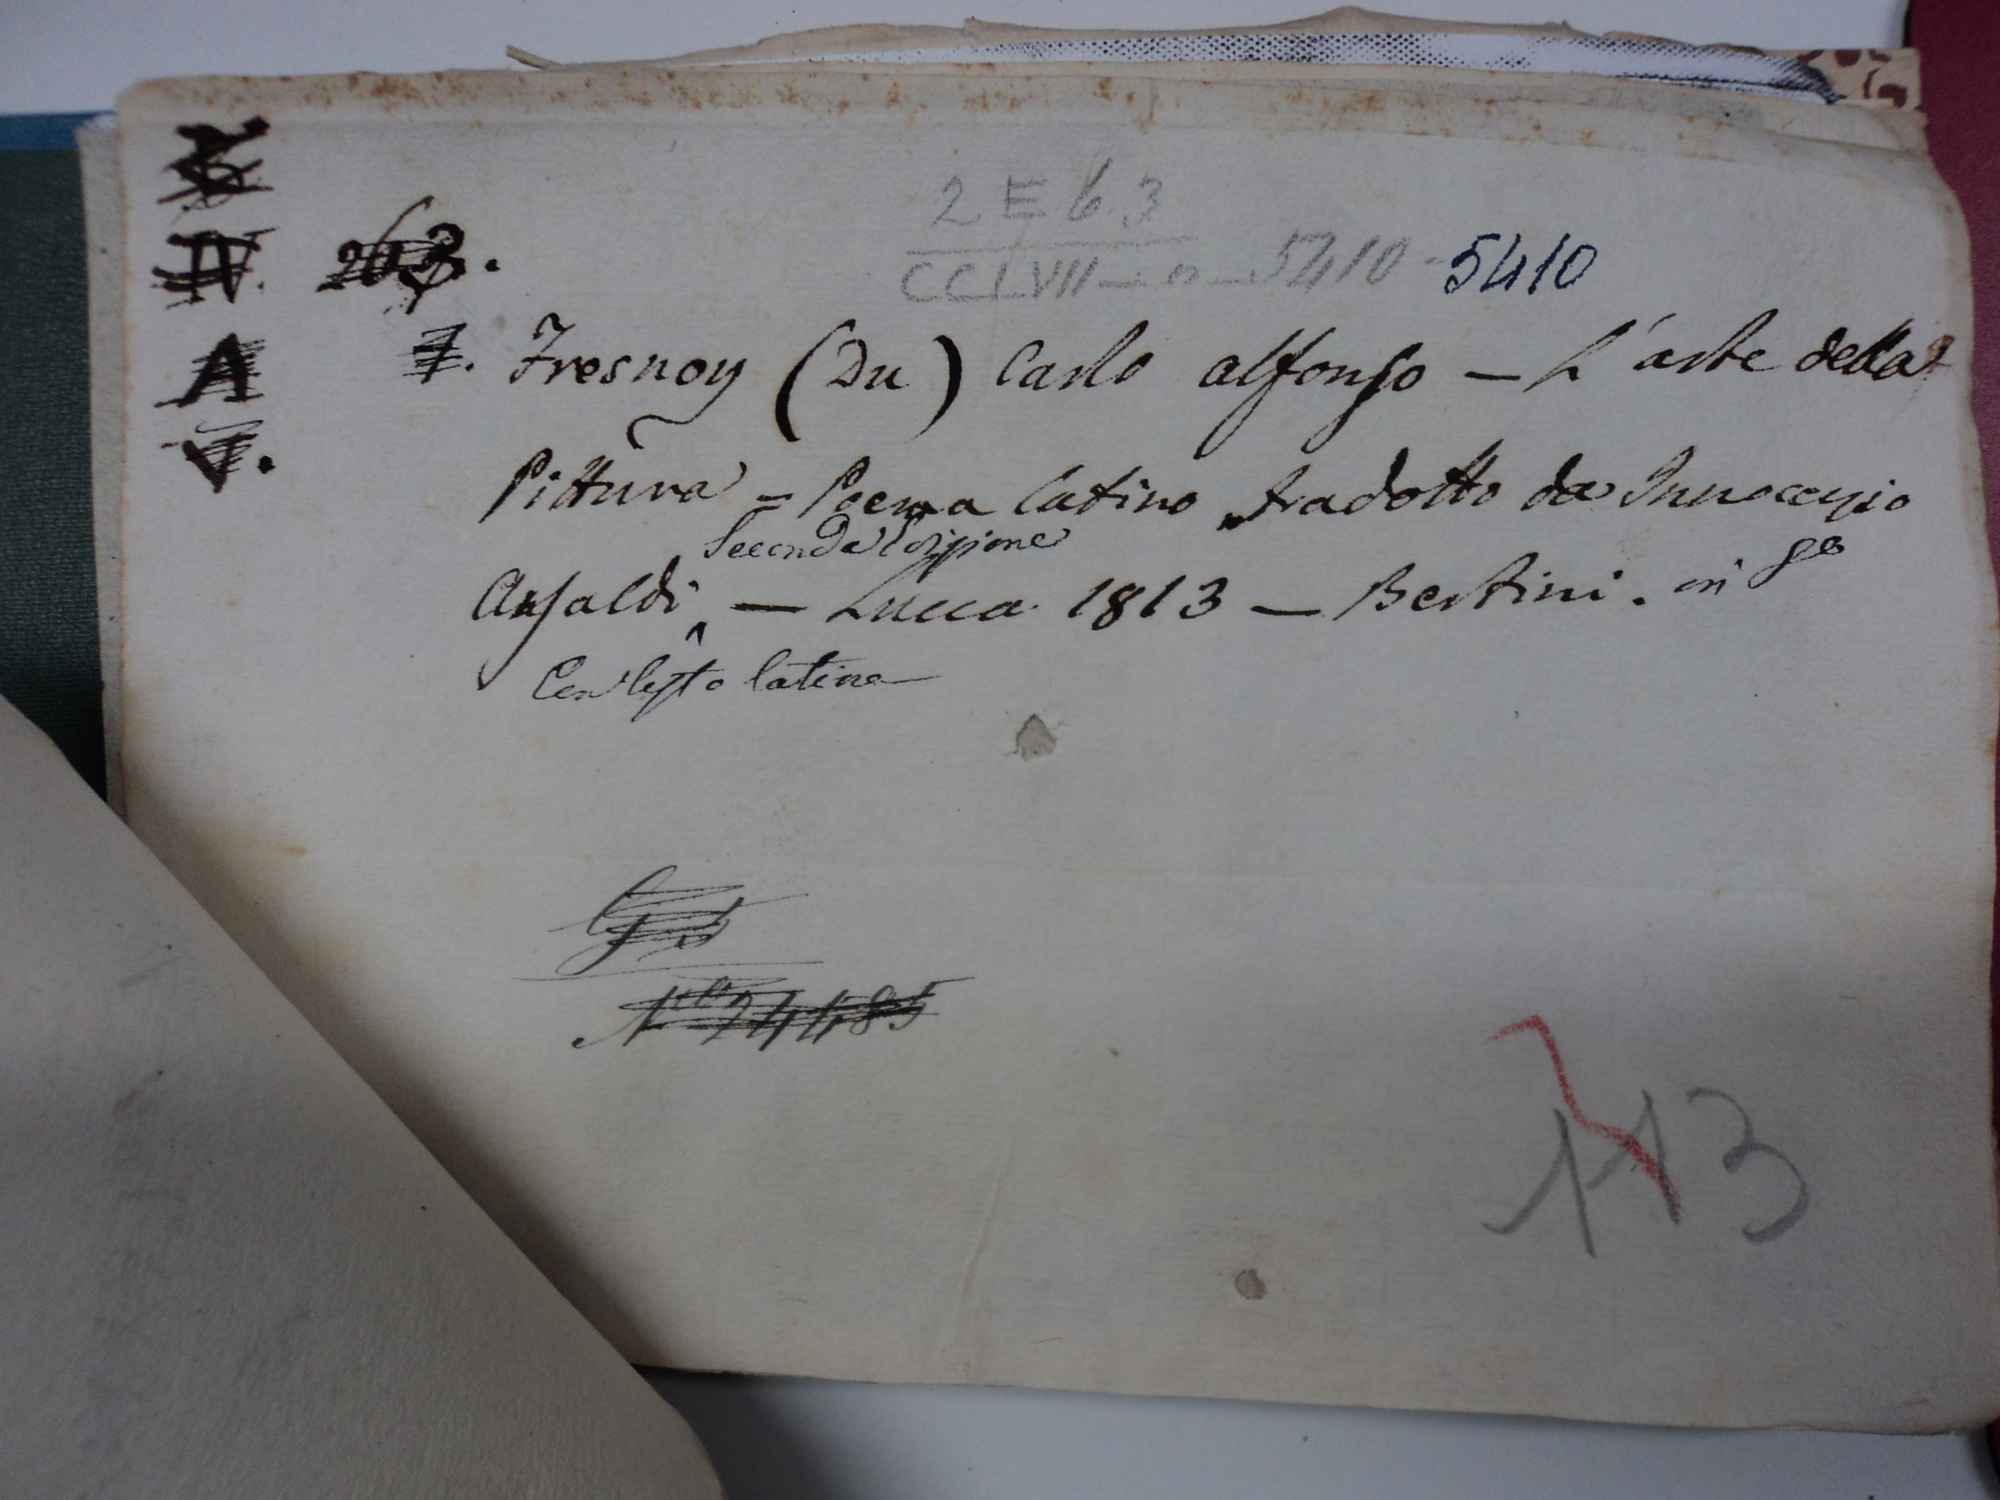 2 E 6.3
IV. 263.
CCLVII 5410 5410
A 7. Fresnoy (Du) Carlo Alfonso — L'arte della
V.
Pittura — Poema latino tradotto da Innocenzio
Seconda Edizione
Ansaldi — Lucca 1813 — Bertini. in 8º
Con testo latino
Nº 24485
113